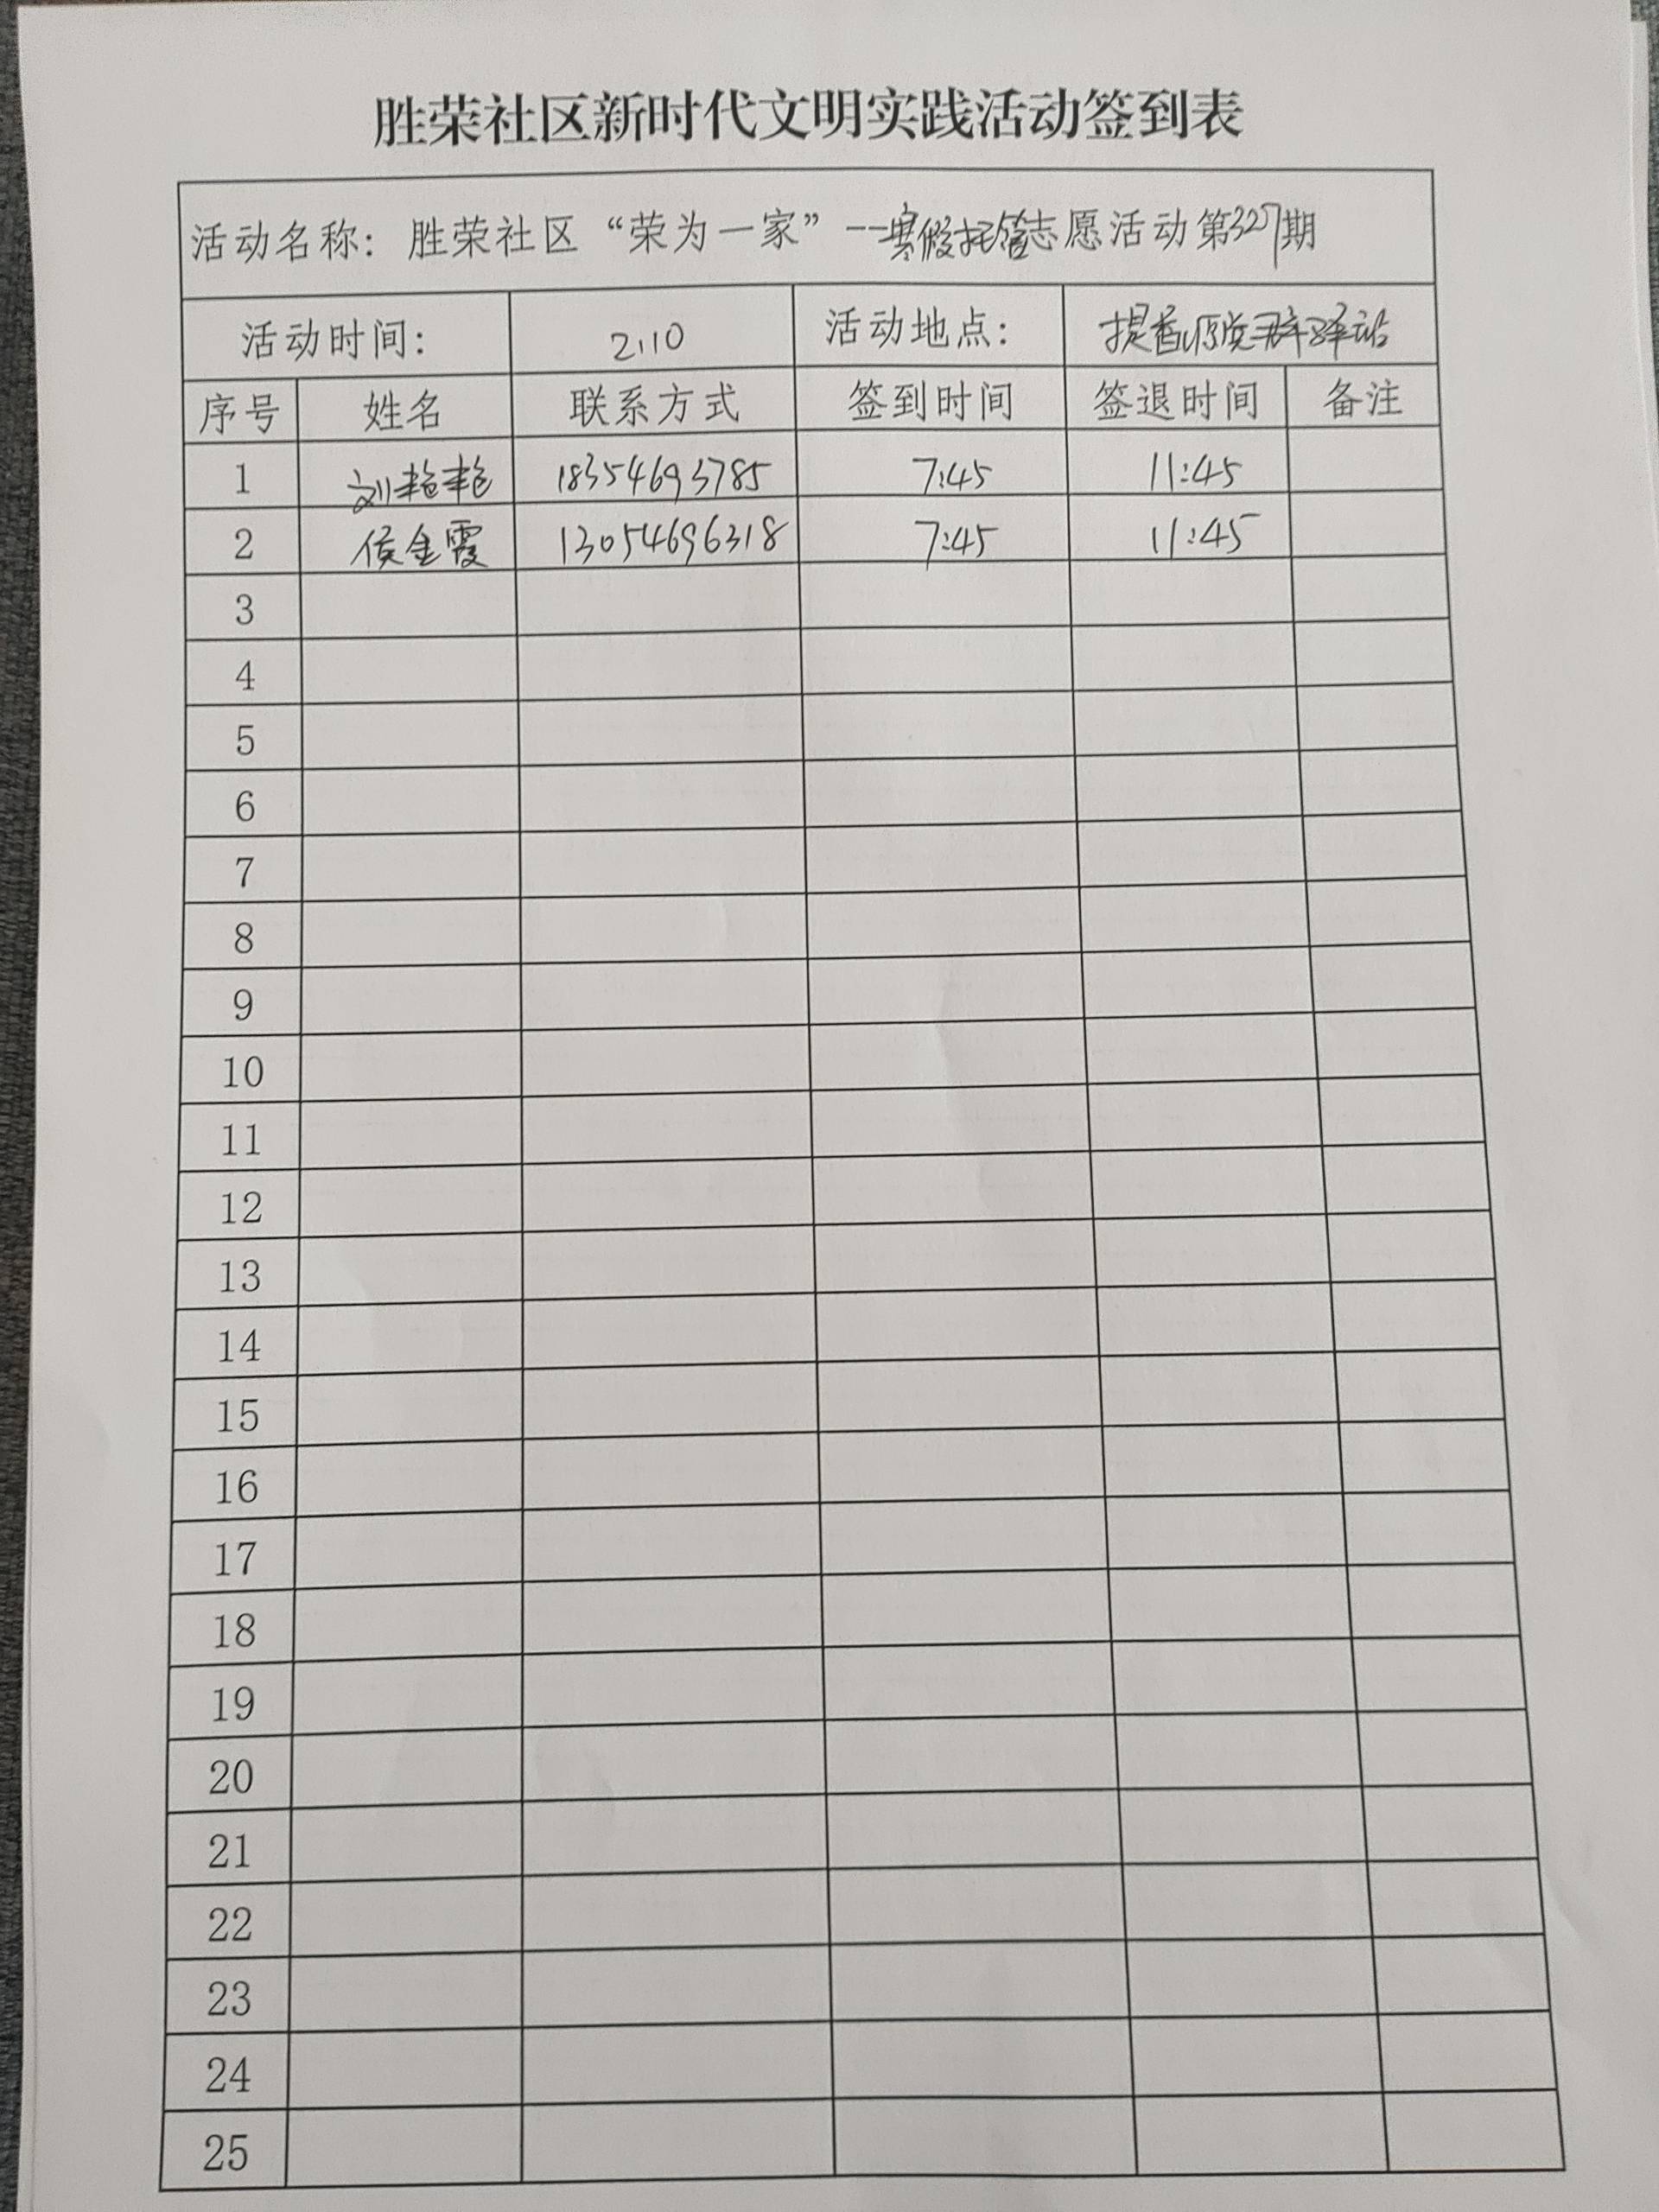 胜荣社区新时代文明实践活动签到表
活动名称：胜荣社区“荣为一家”--寒假托管志愿活动第327期
活动时间： 2.10 活动地点： 提香 党群驿站
序号 姓名 联系方式 签到时间 签退时间 备注
1 刘艳艳 18354693785 7:45 11:45
2 侯金霞 13054696318 7:45 11:45
3
4
5
6
7
8
9
10
11
12
13
14
15
16
17
18
19
20
21
22
23
24
25